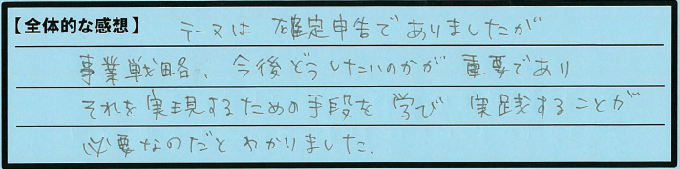 【全体的な感想】 テーマは 確定申告で ありましたが
事業戦略、今後どうしたいのかが 重要であり
それを実現するための手段を 学び 実践することが
必要なのだと わかりました.